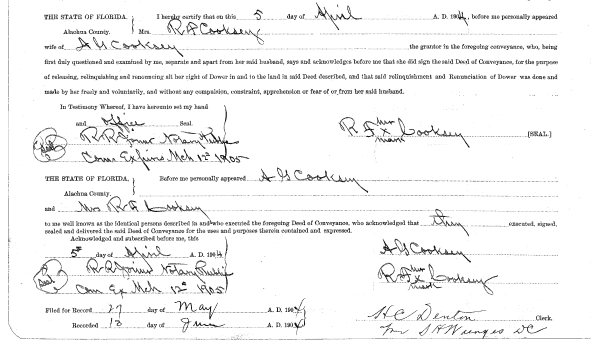 THE STATE OF FLORIDA. } I hereby certify that on this 5 day of April A. D. 1904, before me personally appeared
Alachua County. Mrs. R F Cooksey
wife of A G Cooksey the grantor in the foregoing conveyance, who, being
first duly questioned and examined by me, separate and apart from her said husband, says and acknowledges before me that she did sign the said Deed of Conveyance, for the purpose
of releasing, relinquishing and renouncing all her right of Dower in and to the land in said Deed described, and that said relinquishment and Renunciation of Dower was done and
made by her freely and voluntarily, and without any compulsion, constraint, apprehension or fear of or from her said husband.
In Testimony Whereof, I have hereunto set my hand
and office Seal.
R F her x mark Cooksey [SEAL.]
Seal Notary Public
Com Expires Mch 12th 1905
THE STATE OF FLORIDA, } Before me personally appeared A G Cooksey
Alachua County.
and Mrs R F Cooksey
to me well known as the identical persons described in and who executed the foregoing Deed of Conveyance, who acknowledged that they executed, signed,
sealed and delivered the said Deed of Conveyance for the uses and purposes therein contained and expressed.
Acknowledged and subscribed before me, this
5th day of April A. D. 1904
A G Cooksey
Seal Notary Public
R F her x mark Cooksey
Com Ex Mch 12th 1905
Filed for Record 27 day of May A. D. 1904
H C Denton Clerk.
Recorded 18 day of June A. D. 1904
DC